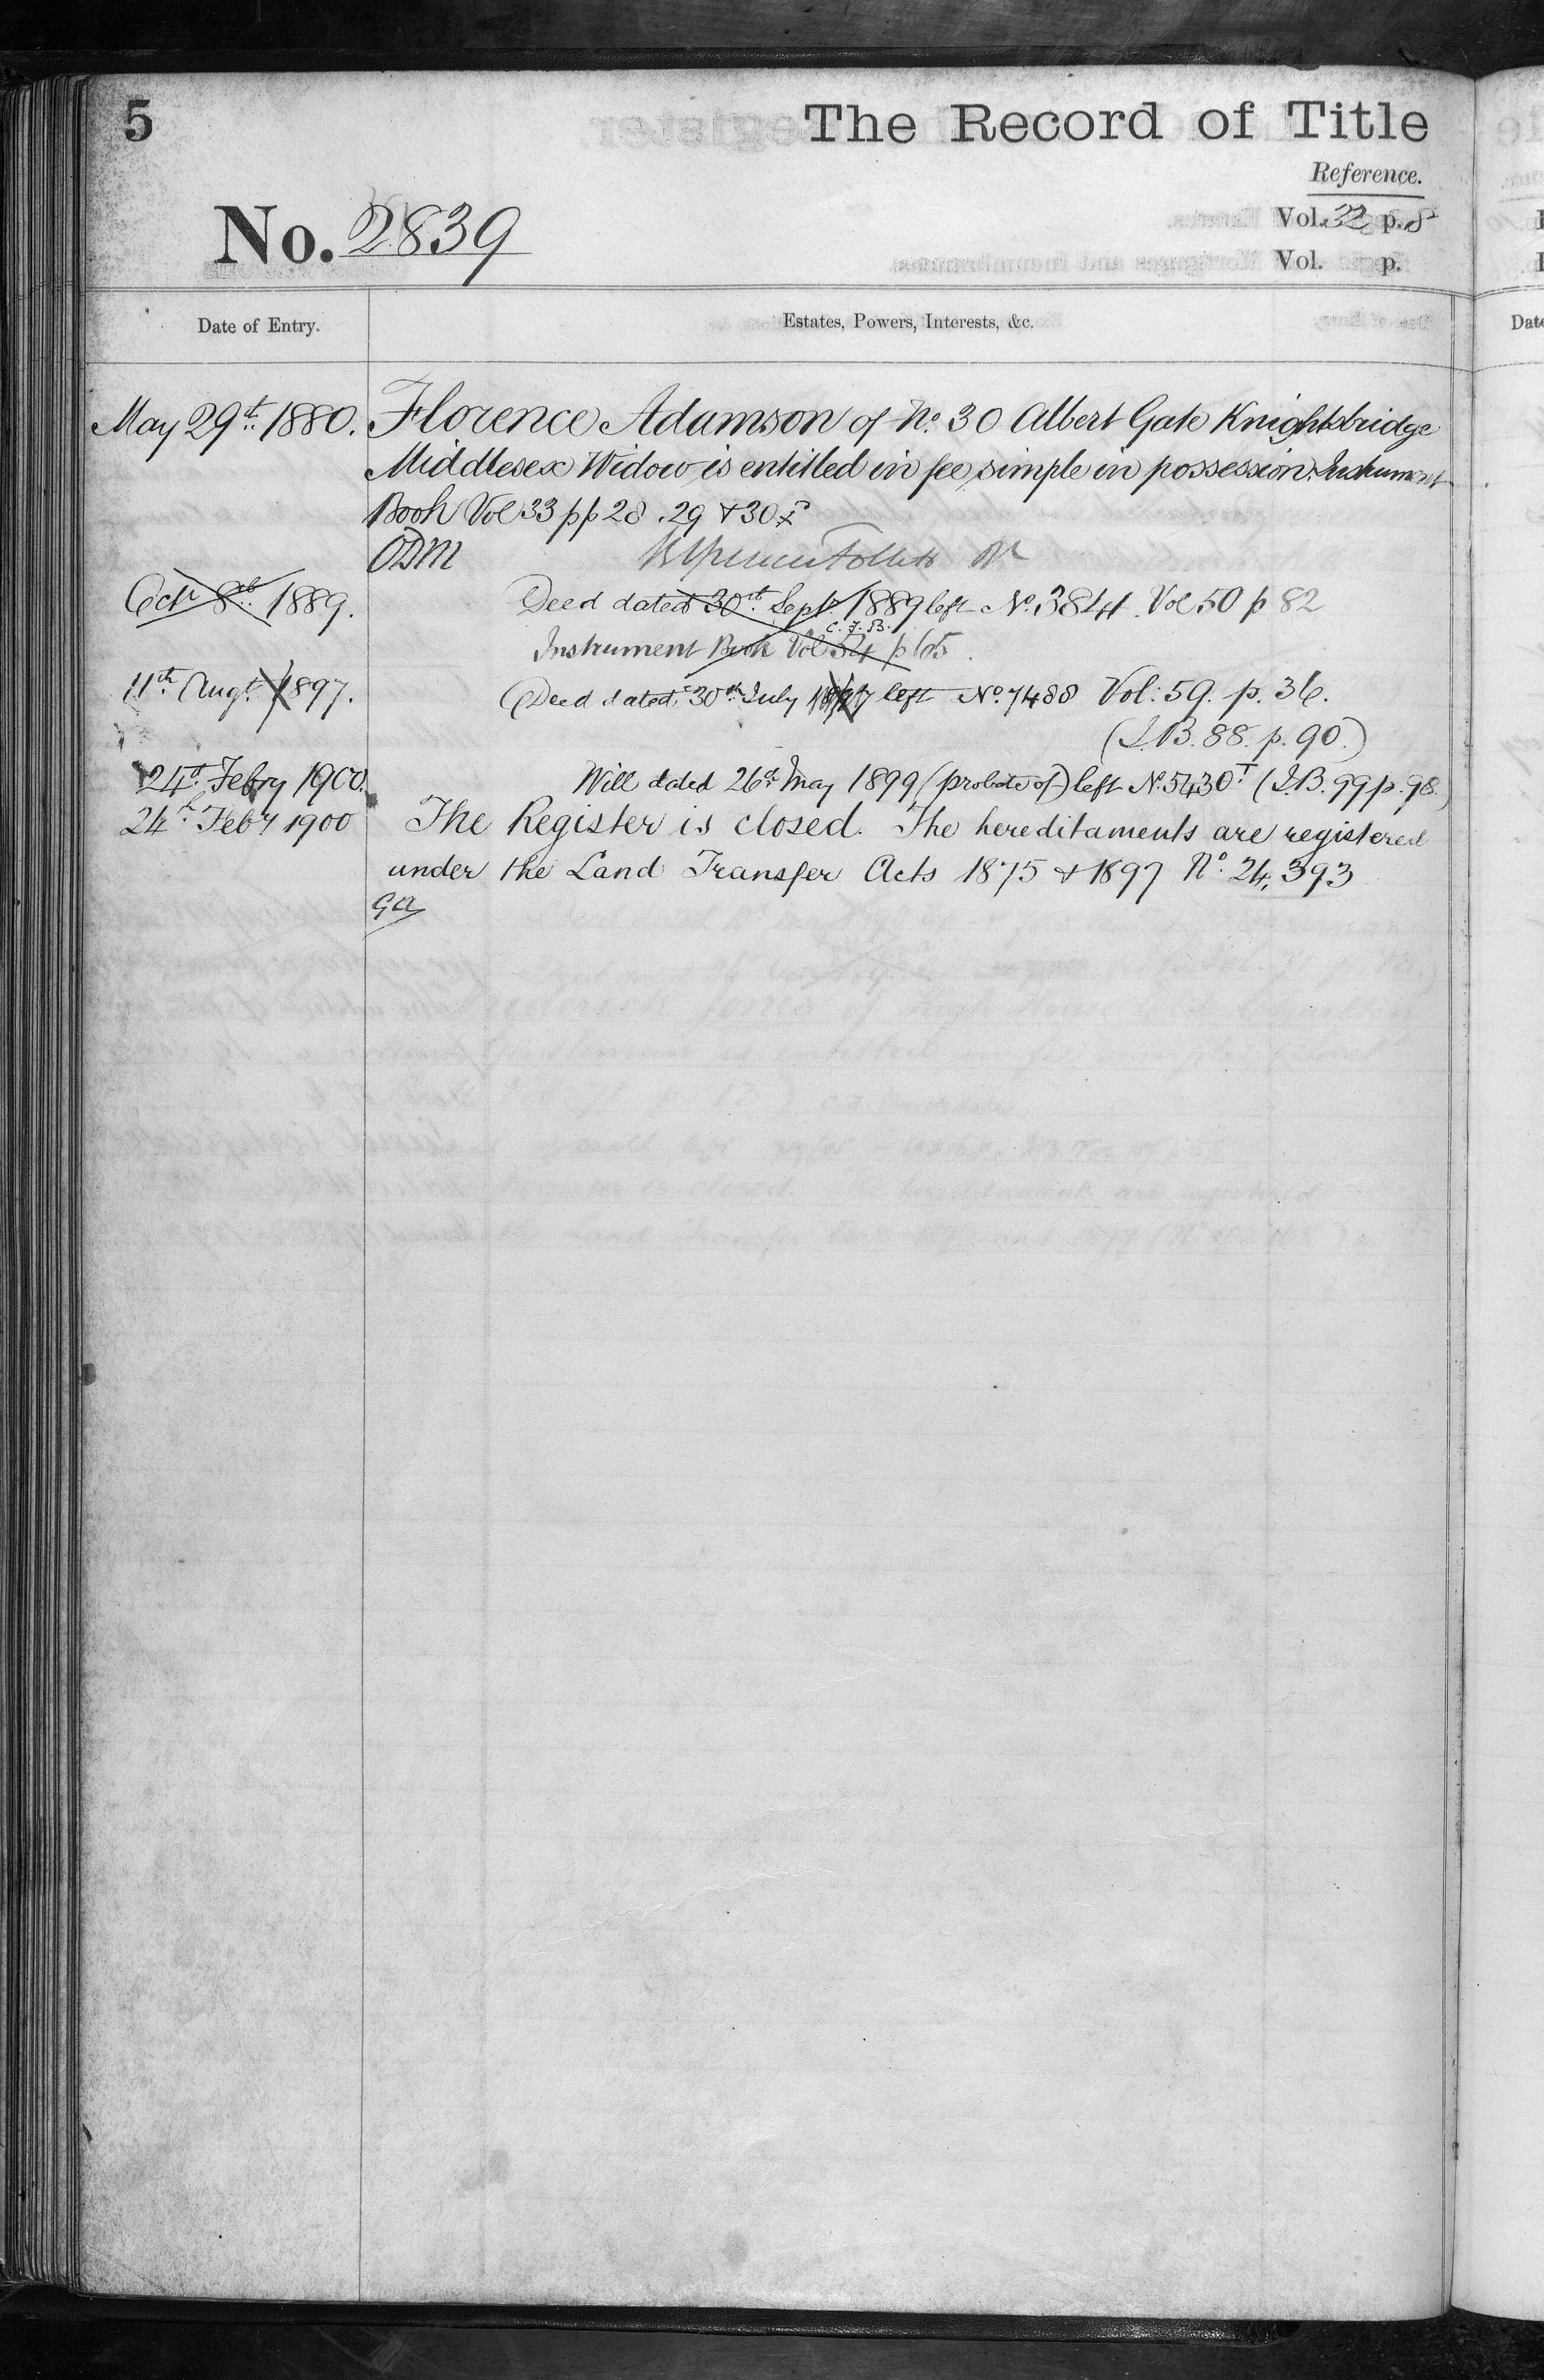 5
The Record of Title
Reference.
No. 2839
Vol. 32 p. 8
Vol. p.
Date of Entry.
Estates, Powers, Interests, &c.
May 29th 1880. Florence Adamson of No. 30 Albert Gate Knightsbridge
Middlesex Widow is entitled in fee simple in possession. Instrument
Book Vol 33 pp 28 . 29 & 30
ODM
Octr 8th 1889. Deed dated 30th Sept. 1889 left No. 3841 Vol 50 p 82
C. J. B.
Instrument Book Vol 54 p 65.
11th Augt. 1897. Deed dated 30th July 1897 left No. 7488 Vol: 59. p. 36.
(I.B. 88. p. 90.)
24th Febry 1900. Will dated 26th May 1899 (probate of) left No. 5430T (I.B. 99 p. 98.)
24th Feby 1900 The Register is closed. The hereditaments are registered
under the Land Transfer Acts 1875 & 1897 No. 24,393
GA
Date